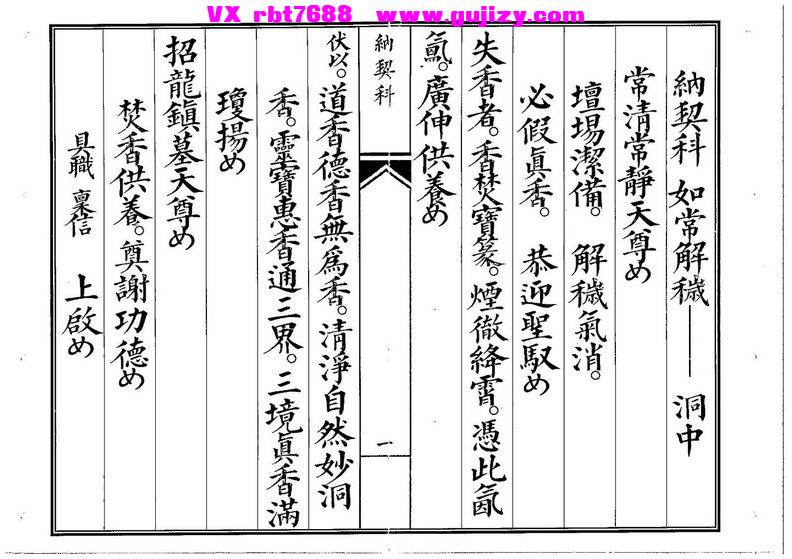 VX rbt7688 www.gujizy.com
納契科 如常解穢——洞中
常清常靜天尊め
壇場潔備。 解穢氣消。
必假眞香。 恭迎聖馭め
失香者。香焚寶篆。煙徹絳霄。憑此氤
氳。廣伸供養め
納契科
一
伏以。道香德香無爲香。清淨自然妙洞
香。靈寶惠香通三界。三境眞香滿
瓊揚め
招龍鎮墓天尊め
焚香供養。奠謝功德め
具職 稟信 上啟め